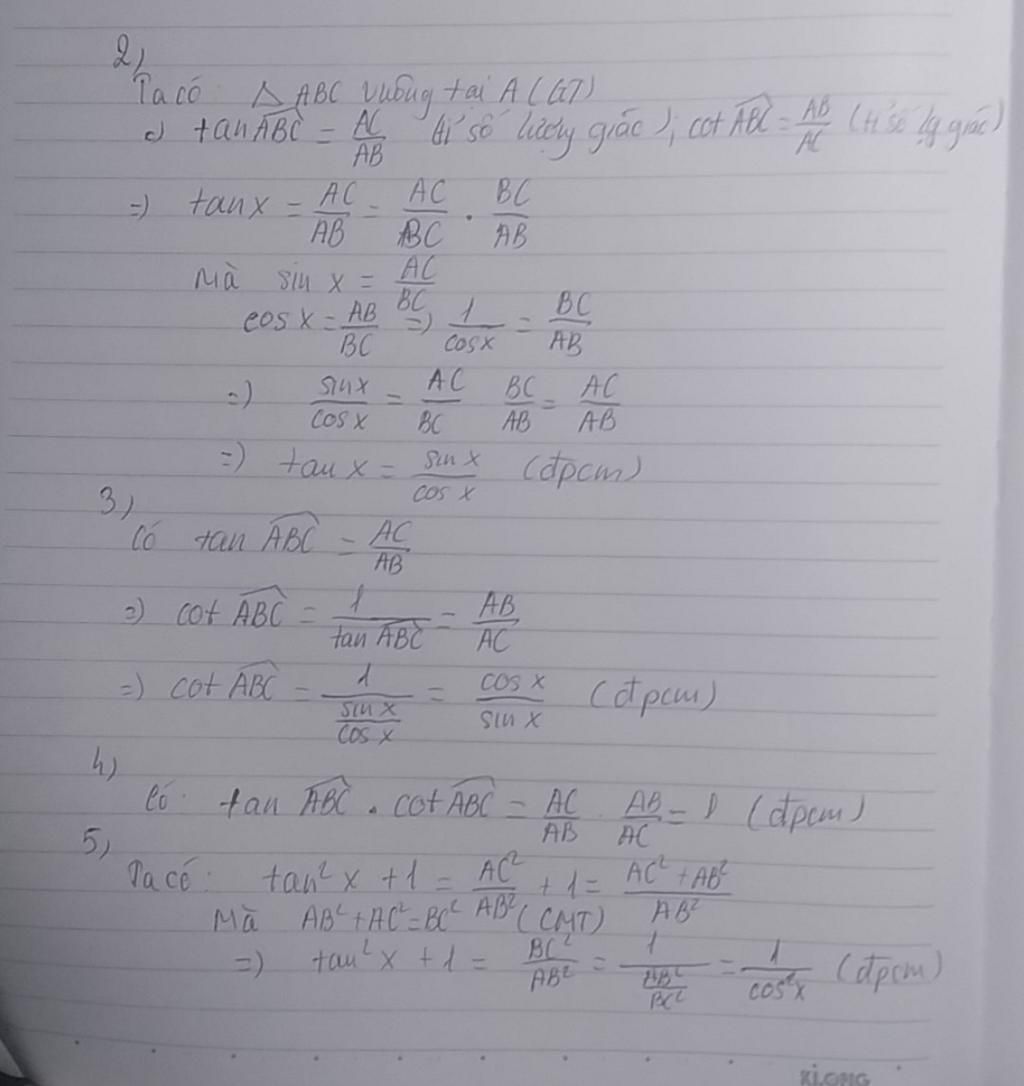 2)
Ta có: △ ABC vuông tại A (GT)
c) tan ABC = AC/AB tỉ số lượng giác); cot ABC = AB/AC (tỉ số lg giác)
=) tan x = AC/AB = AC/BC . BC/AB
Mà sin x = AC/BC
cos x = AB/BC =) 1/cos x = BC/AB
=) sin x/cos x = AC/BC BC/AB = AC/AB
=) tan x = sin x/cos x (đpcm)
3)
Có tan ABC = AC/AB
=) cot ABC = 1/tan ABC = AB/AC
=) cot ABC = 1/(sin x/cos x) = cos x/sin x (đpcm)
4)
Có: tan ABC . cot ABC = AC/AB . AB/AC = 1 (đpcm)
5)
Ta có: tan² x + 1 = AC²/AB² + 1 = (AC² + AB²)/AB²
Mà AB² + AC² = BC² (CMT)
=) tan² x + 1 = BC²/AB² = 1/(AB²/BC²) = 1/cos² x (đpcm)
KLONG